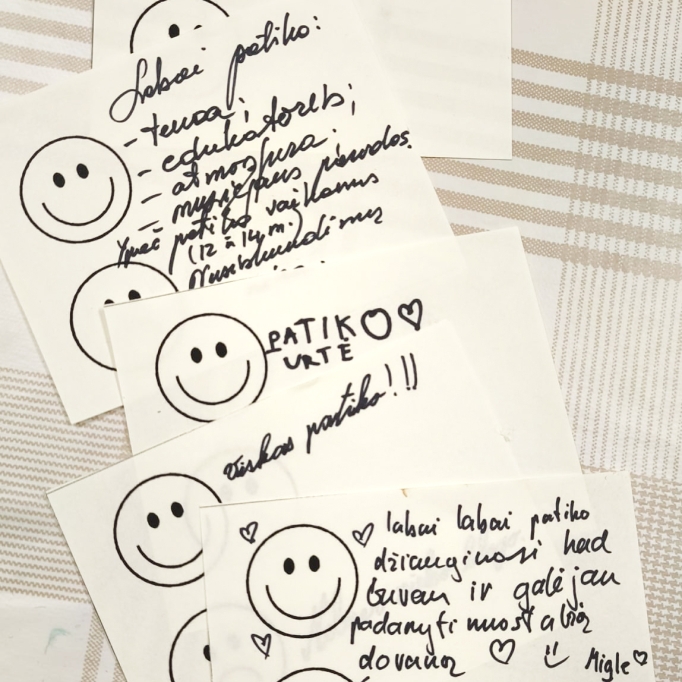 Labai patiko:
- tema;
- edukatorės;
- atmosfera;
- muziejaus nuodos.
Ypač patiko vaikams
(12 ir 14 m.)
Nusiskundimų
PATIKO♡
URTĖ
viskas patiko!!!
labai labai patiko
džiaugiuosi kad
buvau ir galėjau
padaryti nuostabią
dovaną ♡ Miglė♡